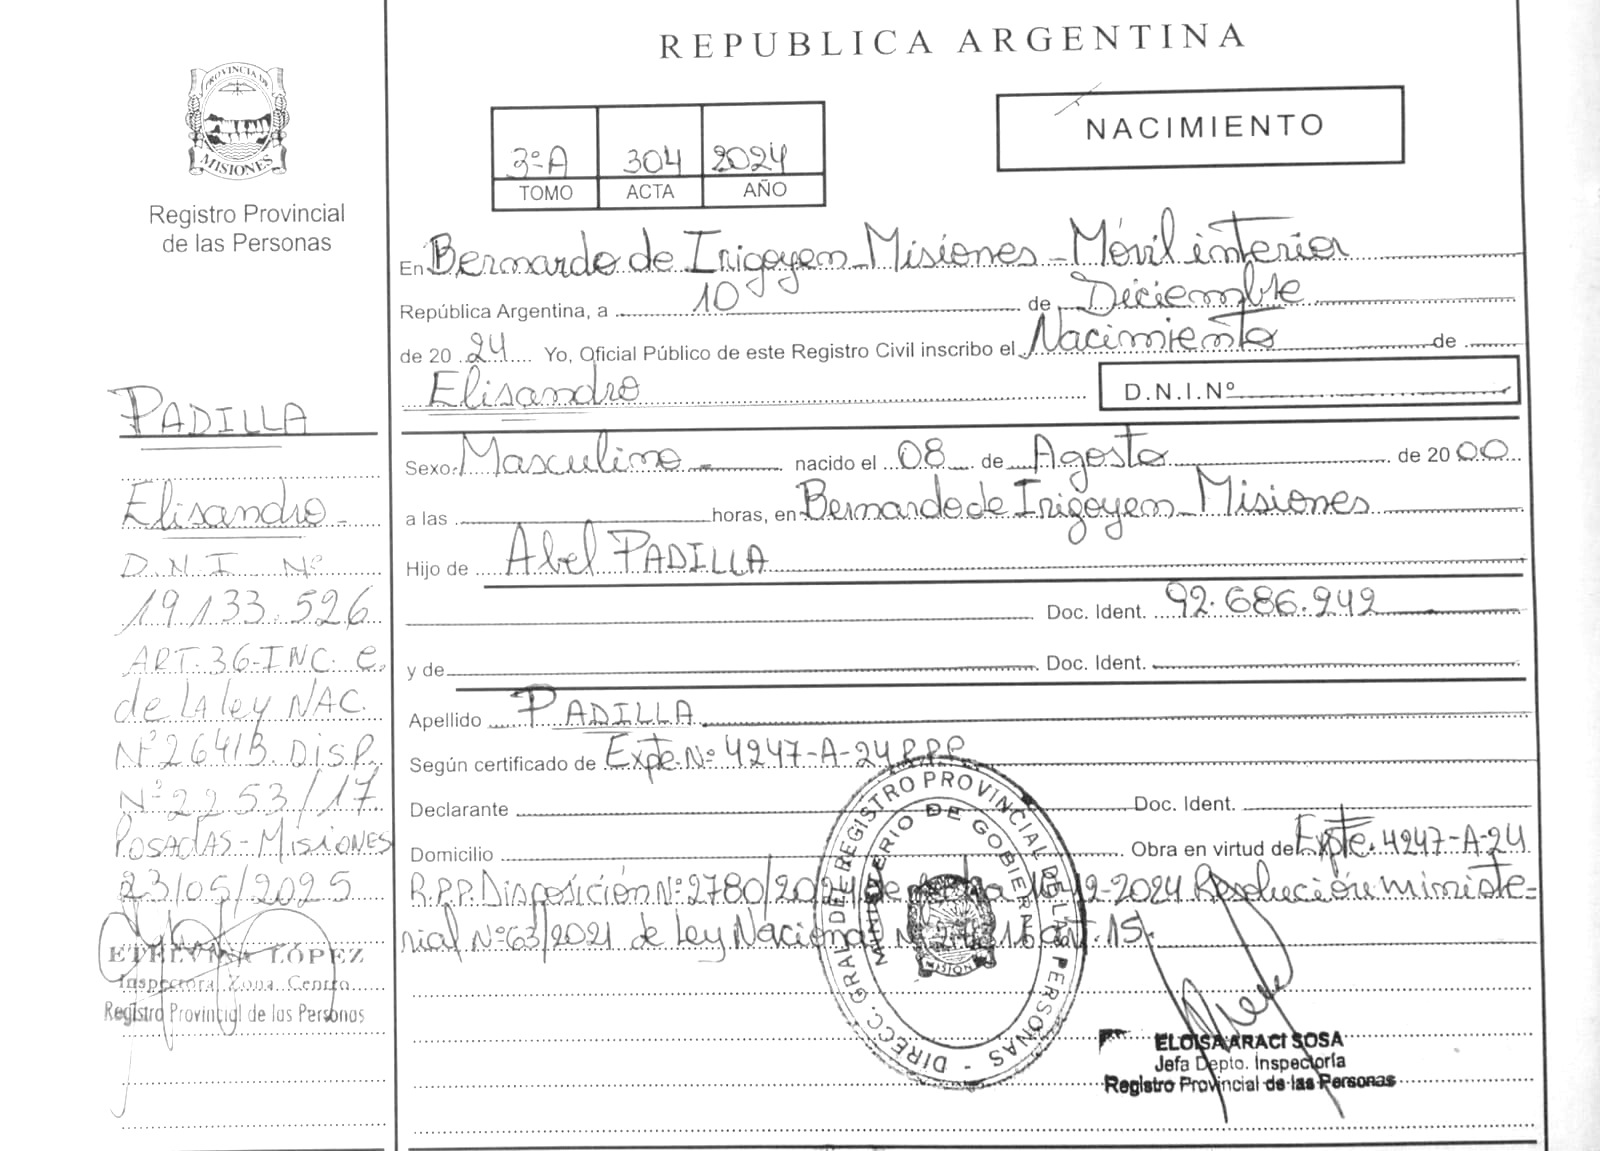 PROVINCIA DE
MISIONES
Registro Provincial
de las Personas
PADILLA
Elisandro
D.N.I Nº
19.133.526
ART.36-INC. e.
de LA ley NAC.
Nº26413. DISP.
Nº2253/17
POSADAS-MISIONES
23/05/2025
ETELVINA LÓPEZ
Inspectora Zona Centro
Registro Provincial de las Personas
REPUBLICA ARGENTINA
3ºA 304 2024
TOMO ACTA AÑO
NACIMIENTO
En Bernardo de Irigoyen-Misiones-Móvil interior
República Argentina, a 10 de Diciembre
de 20 24 Yo, Oficial Público de este Registro Civil inscribo el Nacimiento de
Elisandro D.N.I.Nº
Sexo: Masculino nacido el 08 de Agosto de 20 00
a las horas, en Bernardo de Irigoyen-Misiones
Hijo de Abel PADILLA
Doc. Ident. 92.686.242
y de Doc. Ident.
Apellido PADILLA
Según certificado de Expte.Nº 4247-A-24 R.P.P
Declarante Doc. Ident.
Domicilio Obra en virtud de Expte. 4247-A-24
R.P.P. Disposición Nº2780/2024 de 12-2024. Resolución ministe=
rial Nº63/2021 de Ley Nacional art.15.
DIRECC. GRAL DE REGISTRO PROVINCIAL DE LAS PERSONAS -
MINISTERIO DE GOBIERNO
MISIONES
ELOISA ARACI SOSA
Jefa Depto. Inspectoría
Registro Provincial de las Personas